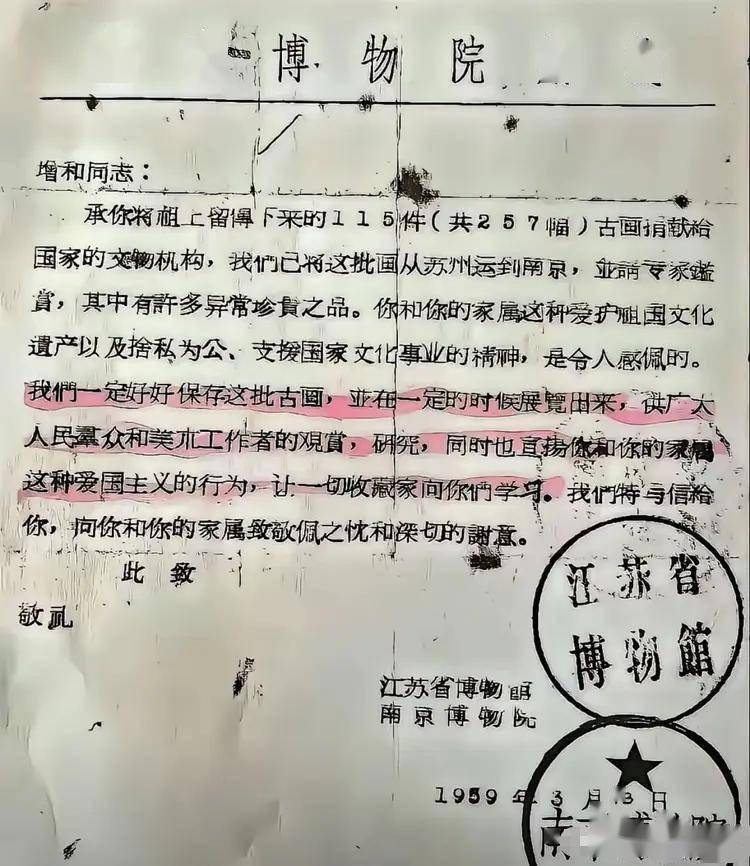 博物院
增和同志：
承你将祖上留傳下来的115件（共257幅）古画捐献給
国家的文物机构，我們已将这批画从苏州运到南京，並請专家鑑
賞，其中有許多异常珍貴之品。你和你的家属这种爱护祖国文化
遺产以及捨私为公、支援国家文化事业的精神，是令人感佩的。
我們一定好好保存这批古画，並在一定的时候展覽出来，供广大
人民羣众和美朮工作者的观賞，研究，同时也宣扬你和你的家属
这种爱国主义的行为，让一切收藏家向你們学习。我們特与信給
你，向你和你的家属致敬佩之忱和深切的謝意。
此致
敬礼
江苏省博物館
南京博物院
1959年3月3日
江苏省
博物館
南京博物院